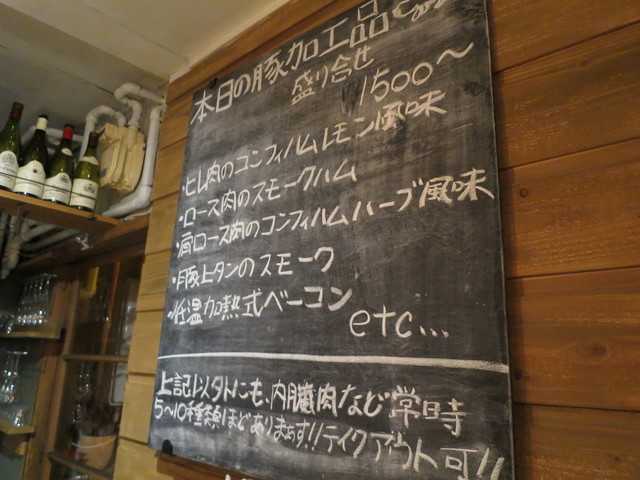 本日の豚加工品
盛り合せ
1500〜
・ヒレ肉のコンフィハムレモン風味
・ロース肉のスモークハム
・肩ロース肉のコンフィハムハーブ風味
・豚上タンのスモーク
・低温加熱式ベーコン
etc...
上記以外にも、内臓肉など常時
5〜10種類ほどあります!!テイクアウト可!!